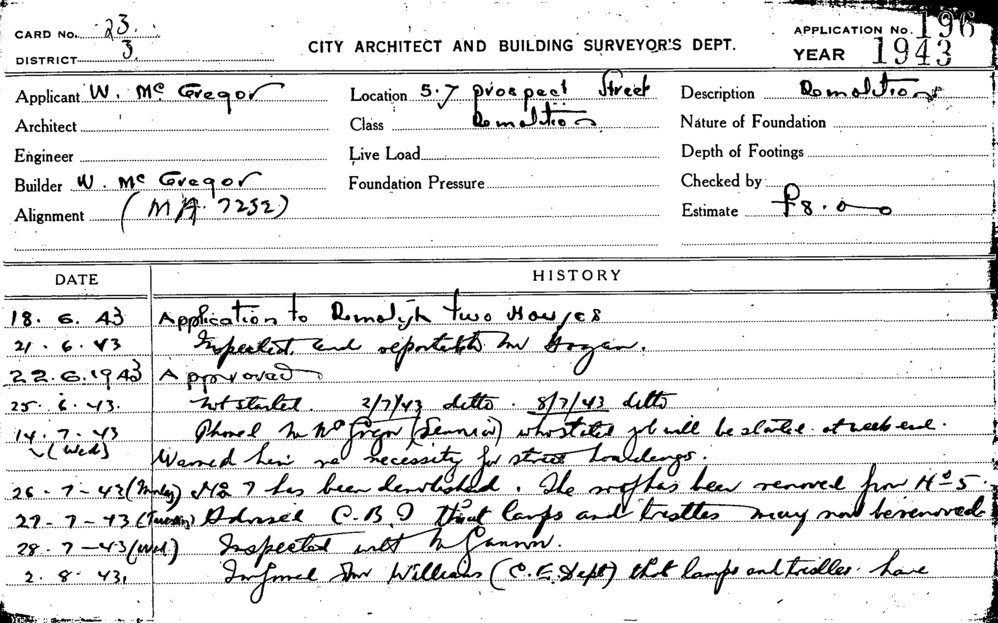 CARD No. 23. APPLICATION No. 196
DISTRICT 3. CITY ARCHITECT AND BUILDING SURVEYOR'S DEPT. YEAR 1943
Applicant W. Mc Gregor Location 5-7 Prospect Street Description Demolition
Architect Class Demolition Nature of Foundation
Engineer Live Load Depth of Footings
Builder W. Mc Gregor Foundation Pressure Checked by
Alignment (MA. 7252) Estimate £8.0-0
DATE HISTORY
18. 6. 43 Application to Demolish two Houses
21. 6. 43 Inspected and reported to Mr Hogan.
22.6.1943 Approved
25. 6. 43. Not started. 2/7/43 ditto. 8/7/43 ditto
14. 7. 43 Phoned Mr McGregor (Senior) who states job will be started at week end.
(Wed) Warned him re necessity for street hoardings.
26-7-43 (Monday) No 7 has been demolished. The roof has been removed from No 5.
27-7-43 (Tuesday) Advised C.B.I that lamps and trestles may now be removed
28.7-43 (Wed) Inspected with Mr Gannon.
2. 8. 43. Informed Mr Williams (C.E. Dept) that lamps and trestles have